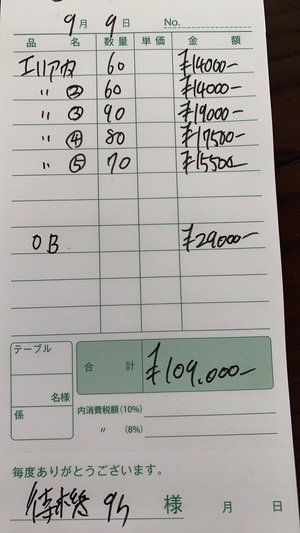 9月 9日 No.
品名 数量 単価 金額
エリアタ 60 ¥14000-
〃 ② 60 ¥14000-
〃 ③ 90 ¥19000-
〃 ④ 80 ¥17500-
〃 ⑤ 70 ¥15500-
OB ¥29000-
テーブル
合計 ¥109,000-
名様
係
内消費税額(10%)
〃 (8%)
毎度ありがとうございます。
待機 9h 様 月 日